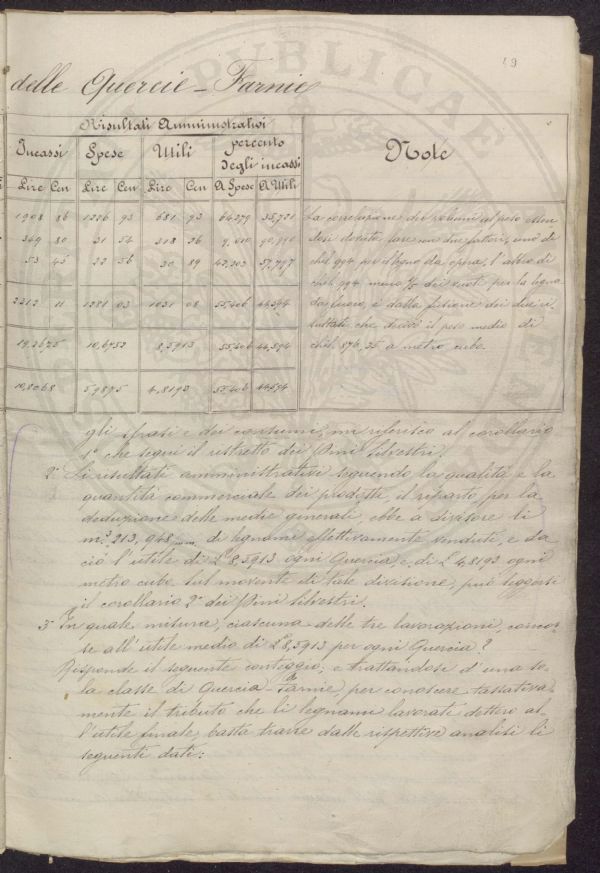 49
delle Quercie - Farnie
Risultati Amministrativi
Incassi Spese Utili percento degli incassi Note
Lire Cen Lire Cen Lire Cen A Spese A Utili
1908 86 1226 93 681 93 64279 35,721
349 80 31 54 318 26 9,010 90,990
53 45 22 56 30 89 42,203 57,797
2212 11 1281 03 1031 08 55,406 44,594
19,2675 10,6752 8,5913 55,406 44,594
10,8068 5,9875 4,8193 55,406 44,594
La correlazione dei volumi al peso essen
dosi dovuta fare con due fattori, uno di
chil. 994 per il legno da opera, l'altro di
chil. 994 meno dei vuoti per la legna
da fuoco, è dalla fusione dei due ri
sultati, che derivò il peso medio di
chil. 876,35 a metro cubo.
gli sfrasi e dei consumi, mi riferisco al corollario
1° che seguì il ristretto dei Pini Silvestri.
2° Li risultati amministrativi seguendo la qualità e la
quantità commerciale dei prodotti, il riparto per la
deduzione delle medie generali, ebbe a divisore li
m.³ 213,948 di legname effettivamente venduti, e da
ciò l'utile di L. 8,5913 ogni Quercia e di L. 4,8193 ogni
metro cubo. Sul movente di tale divisione, può leggersi
il corollario 2° dei Pini Silvestri.
3° In quale misura, ciascuna delle tre lavorazioni, concor
se all'utile medio di L. 8,5913 per ogni Quercia?
Risponde il seguente conteggio, e trattandosi d'una so
la classe di Quercia - Farnie, per conoscere tassativa
mente il tributo che li legnami lavorati dettero al
l'utile finale, basta trarre dalle rispettive analisi li
seguenti dati: